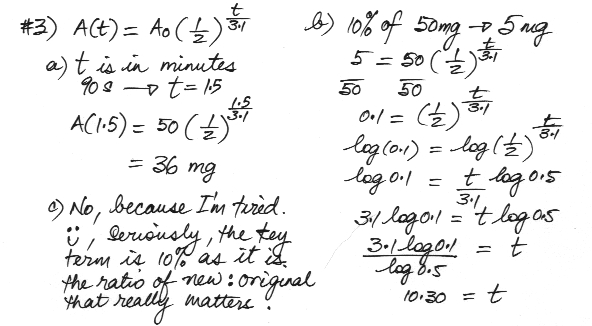 #3) A(t) = A₀(1/2)^(t/3.1)
a) t is in minutes
90 s → t = 1.5
A(1.5) = 50(1/2)^(1.5/3.1)
= 36 mg
c) No, because I'm tired.
Seriously, the key
term is 10% as it is
the ratio of new : original
that really matters.
b) 10% of 50mg → 5 mg
5 = 50(1/2)^(t/3.1)
50 50
0.1 = (1/2)^(t/3.1)
log(0.1) = log(1/2)^(t/3.1)
log 0.1 = t/3.1 log 0.5
3.1 log 0.1 = t log 0.5
3.1 log 0.1 / log 0.5 = t
10.30 = t